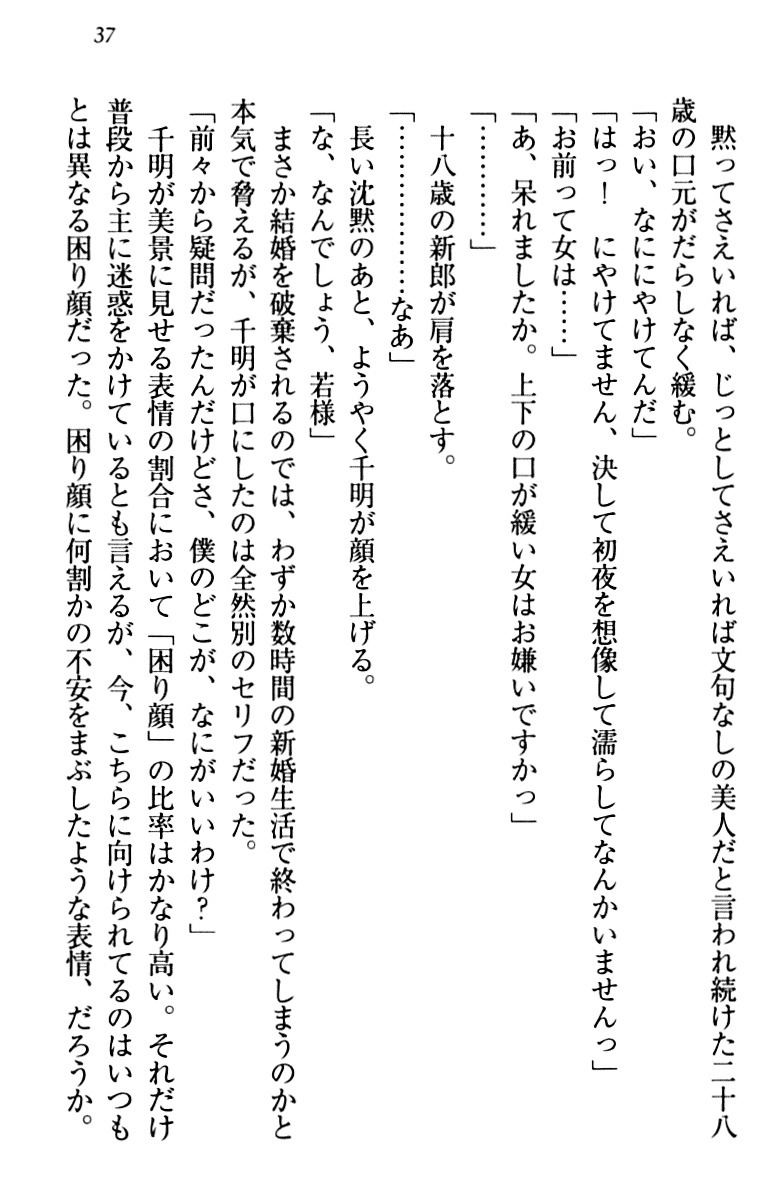 37
黙ってさえいれば、じっとしてさえいれば文句なしの美人だと言われ続けた二十八
歳の口元がだらしなく緩む。
「おい、なににやけてんだ」
「はっ！　にやけてません、決して初夜を想像して濡らしてなんかいませんっ」
「お前って女は……」
「あ、呆れましたか。上下の口が緩い女はお嫌いですかっ」
「…………」
十八歳の新郎が肩を落とす。
「………………なあ」
長い沈黙のあと、ようやく千明が顔を上げる。
「な、なんでしょう、若様」
まさか結婚を破棄されるのでは、わずか数時間の新婚生活で終わってしまうのかと
本気で脅えるが、千明が口にしたのは全然別のセリフだった。
「前々から疑問だったんだけどさ、僕のどこが、なにがいいわけ？」
千明が美景に見せる表情の割合において「困り顔」の比率はかなり高い。それだけ
普段から主に迷惑をかけているとも言えるが、今、こちらに向けられてるのはいつも
とは異なる困り顔だった。困り顔に何割かの不安をまぶしたような表情、だろうか。